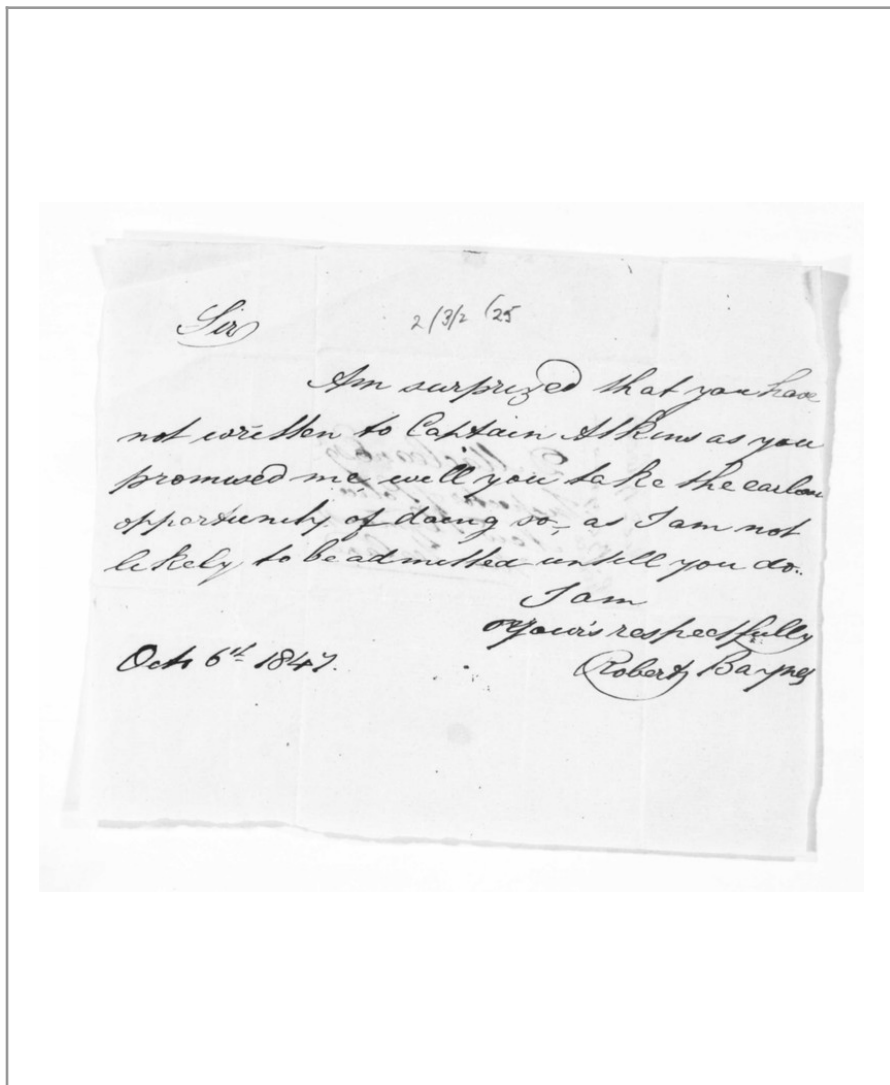 Sir
2/3/2 (25
Am surprized that you have
not written to Captain Atkins as you
promised me, will you take the
opportunity of doing so, as I am not
likely to be admitted untill you do.
I am
Your's respectfully
Octr 6th 1847. Robert Baynes